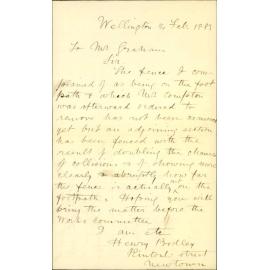 Wellington 2 Feb 1889
To Mr Graham
Sir
The fence I com-
plained of as being on the foot
path & which Mr Compton
was afterward ordered to
remove has not been removed
yet but an adjoining section
has been fenced with the
result of doubling the chances
of collisions & of showing more
clearly & abruptly how far
the fence is actually not on the
footpath. Hoping you will
bring the matter before the
Works committee
I am etc
Henry Bodley
Rintoul street
Newtown